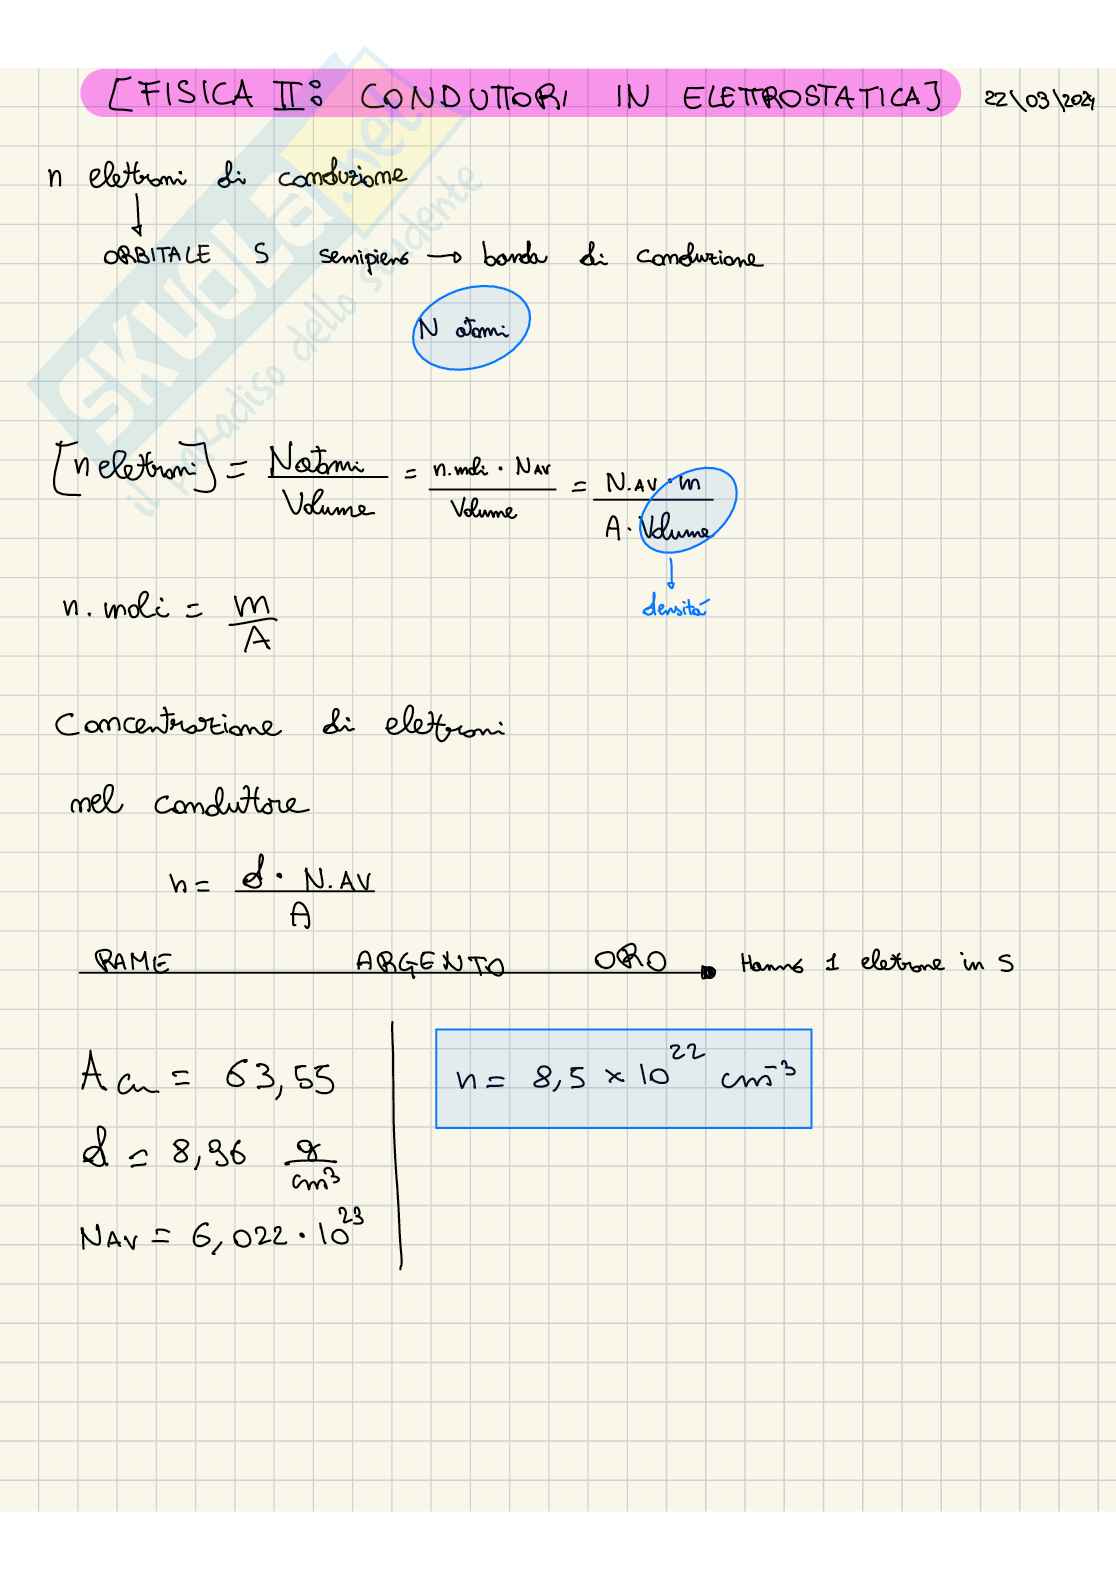 [FISICA II: CONDUTTORI IN ELETTROSTATICA] 22/03/2024
n elettroni di conduzione
ORBITALE S semipieno → banda di conduzione
N atomi
[n elettroni] = N atomi / Volume = n.moli · NAV / Volume = N.AV · m / A · Volume
densità
n. moli = m / A
Concentrazione di elettroni
nel conduttore
n = d · N.AV / A
RAME ARGENTO ORO Hanno 1 elettrone in S
A Cu = 63,55
n = 8,5 × 10^22 cm^-3
d = 8,96 g/cm^3
NAV = 6,022 · 10^23
SKUOLA.net
il paradiso dello studente